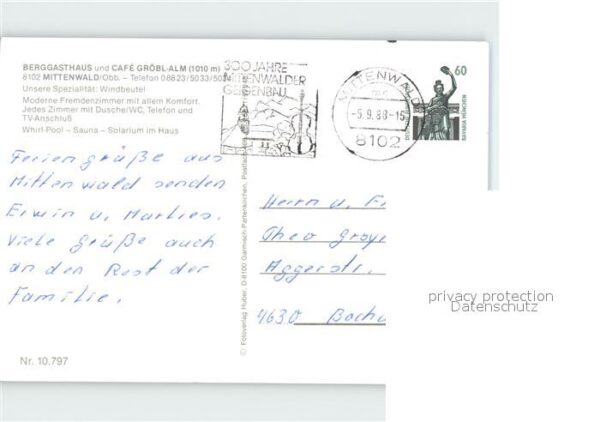 BERGGASTHAUS und CAFÉ GRÖBL-ALM (1010 m)
8102 MITTENWALD/Obb. – Telefon 08823/5033/5034
Unsere Spezialität: Windbeutel
Moderne Fremdenzimmer mit allem Komfort.
Jedes Zimmer mit Dusche/WC, Telefon und
TV-Anschluß
Whirl-Pool – Sauna – Solarium im Haus
Feriengrüße aus
Mittenwald senden
Erwin u. Marlies.
Viele Grüße auch
an den Rest der
Familie.
Nr. 10.797
© Fotoverlag Huber, D-8100 Garmisch-Partenkirchen, Postfach
300 JAHRE
MITTENWALDER
GEIGENBAU
MITTENWALD
-5.9.88-15
8102
60
BAVARIA MÜNCHEN
Herrn u. F
Theo
Aggerstr.
4630 Bochu
privacy protection
Datenschutz